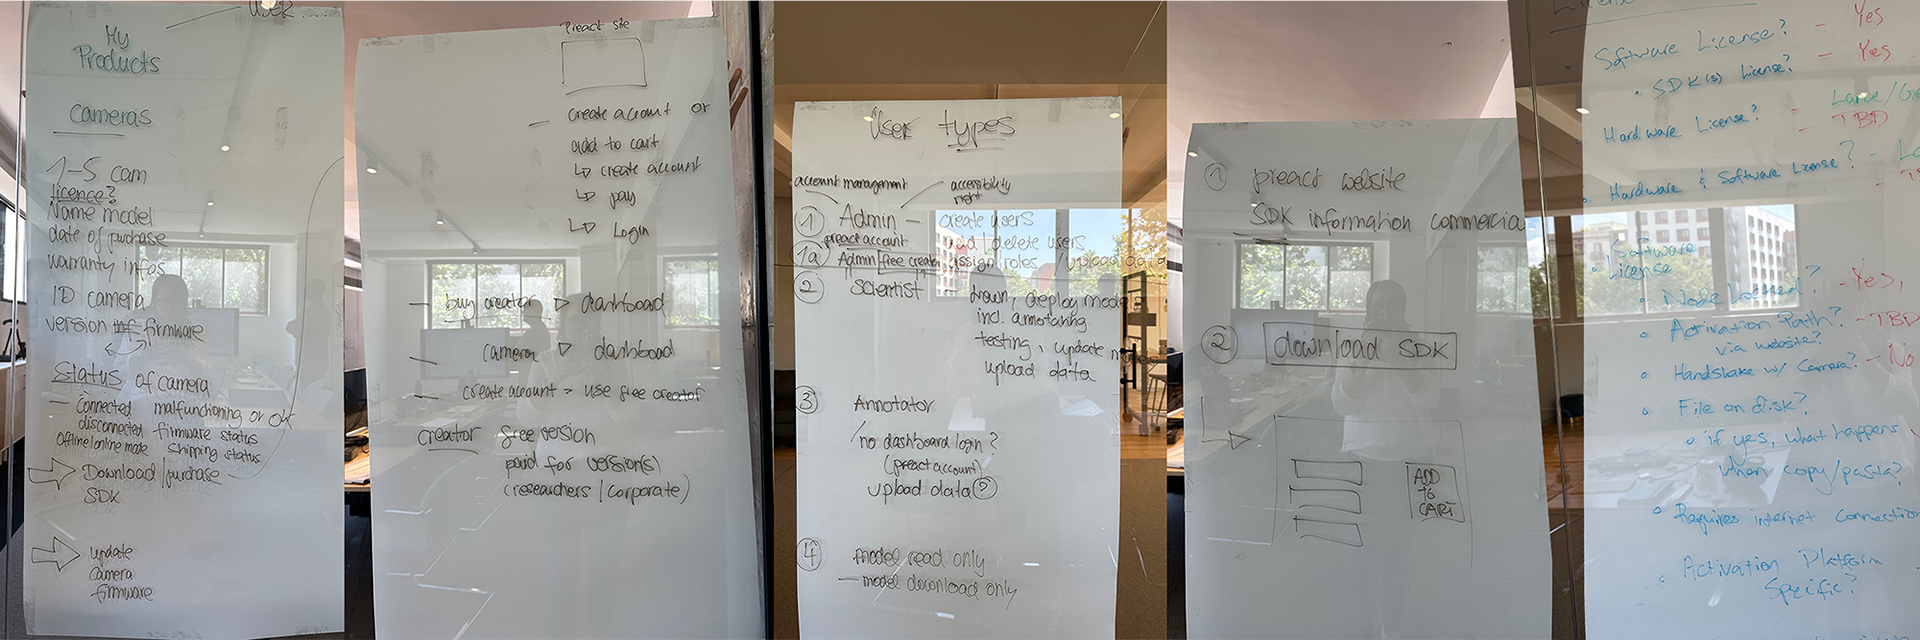 User
My
Products
cameras
1-5 cam
licence?
Name model
date of purchase
warranty infos
ID camera
version firmware
Status of camera
- Connected malfunctioning or ok
disconnected firmware status
Offline/online mode shipping status
Download/purchase
SDK
update
camera
firmware
Preact site
- create account or
add to cart
↳ create account
↳ pay
↳ Login
- buy creator ▷ dashboad
- camera ▷ dashboad
- create account > use free creator
creator free version
paid for version(s)
(researchers/corporate)
User types
account management
accessibility
right
① Admin - create users
preact account
add/delete users
①a Admin free creator assign roles /upload data
② Scientist
deploy models
incl. annotating
testing, update
upload data
③ Annotator
no dashboard login?
(preact account)
upload data ?
④ model read only
- model download only
① preact website
SDK information commercial
② download SDK
ADD
TO
CART
Software License? - Yes
• SDK(s) License? - Yes
Hardware License? - TBD
• Hardware & Software License?
• Software
License
• Node Locked? - Yes,
• Activation Path? - TBD
via website?
• Handshake w/ Camera? - No
• File on disk?
• if yes, what happens
when copy/pasta?
• Requires internet connection
• Activation Platform
Specific?